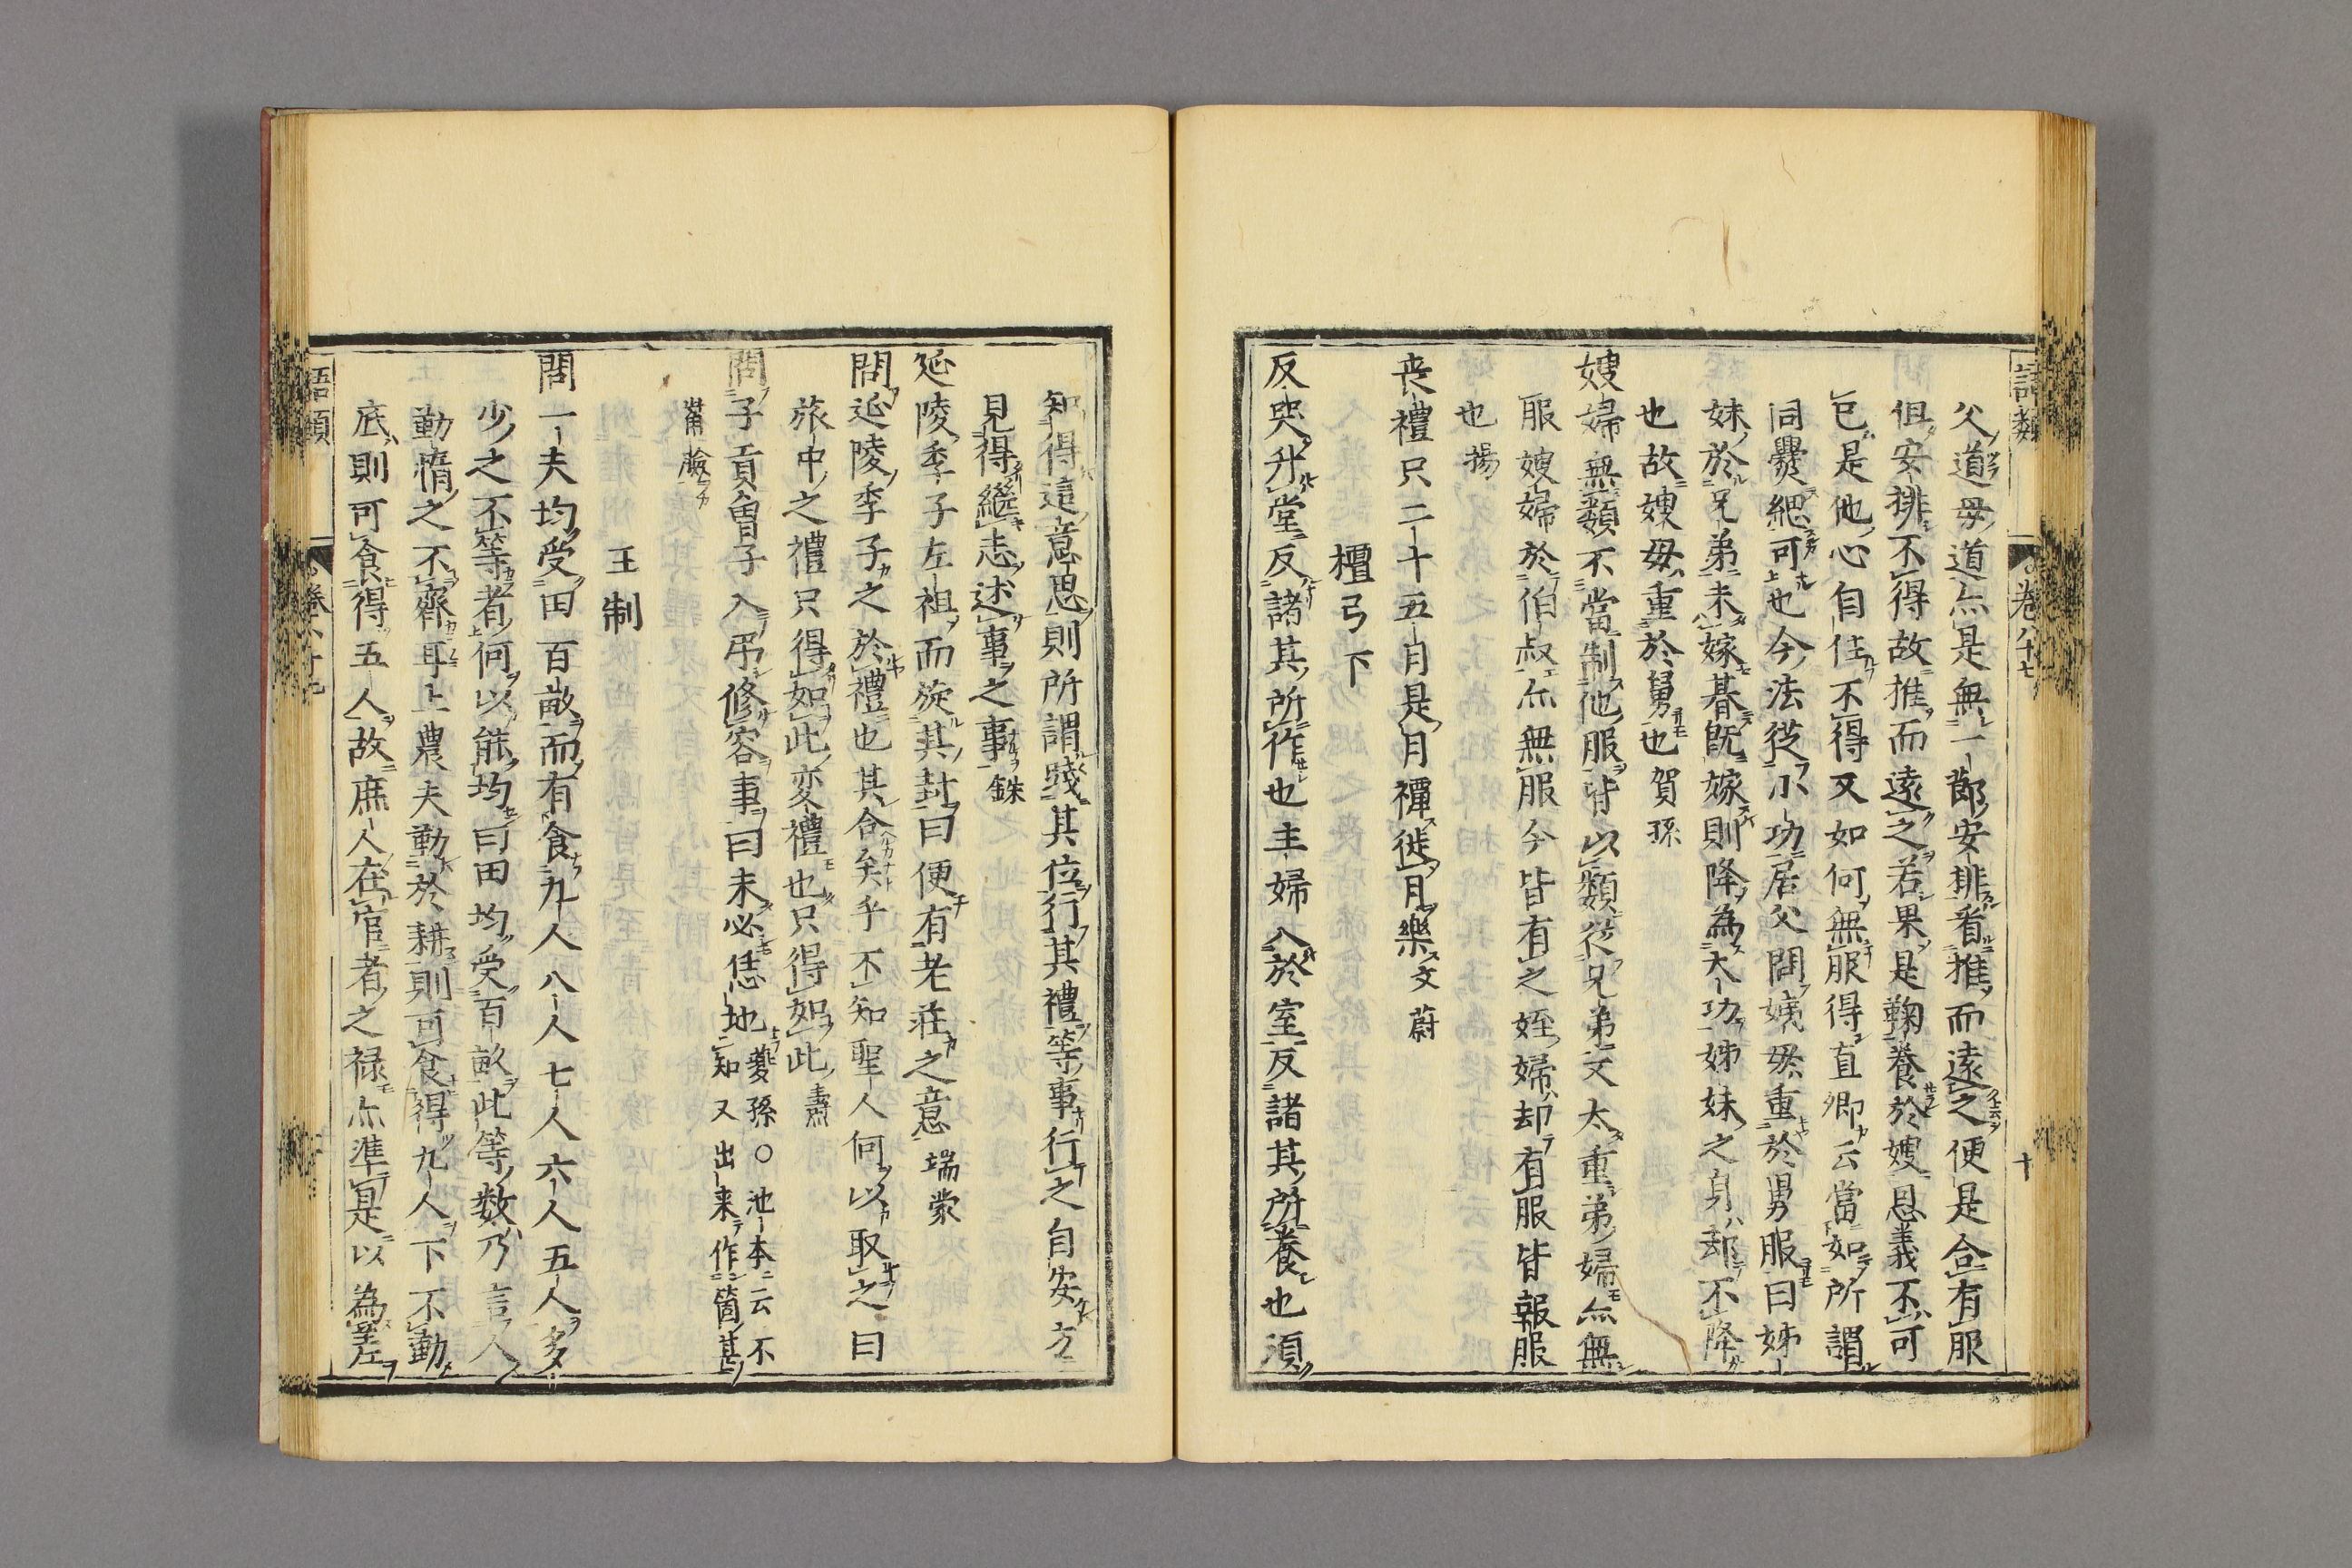 語類
卷八十七
十
父道母道亦是無一節安排看推而遠之便是合有服
但安排不得故推而遠之若果是鞠養於嫂恩義不可
已是他心自住不得又如何無服得直卿云當如所謂
同爨緦可也今法從小功居父問姨母重於舅服曰姊
妹於兄弟未嫁朞既嫁則降為大功姊妹之身却不降
也故姨母重於舅也賀孫
嫂婦無類不當制他服皆以類從兄弟又太重弟婦亦無
服嫂婦於伯叔亦無服今皆有之姪婦却有服皆報服
也揚
喪禮只二十五月是月禫徙月樂文蔚
檀弓下
反哭升堂反諸其所作也主婦入於室反諸其所養也須
知得這意思則所謂踐其位行其禮等事行之自安方
見得繼志述事之事銖
延陵季子左袒而旋其封曰便有老莊之意端蒙
問延陵季子之於禮也其合矣乎不知聖人何以取之曰
旅中之禮只得如此変禮也只得如此燾
問子貢曾子入弔修容事曰未必恁地夔孫○池本云不
知又出来作箇甚
嘴臉
王制
問一夫均受田百畝而有食九人八人七人六人五人多
少之不等者何以能均曰田均受百畝此等数乃言人
勤惰之不齊耳上農夫勤於耕則可食得九人下不勤
底則可食得五人故庶人在官者之禄亦準是以為差
語類